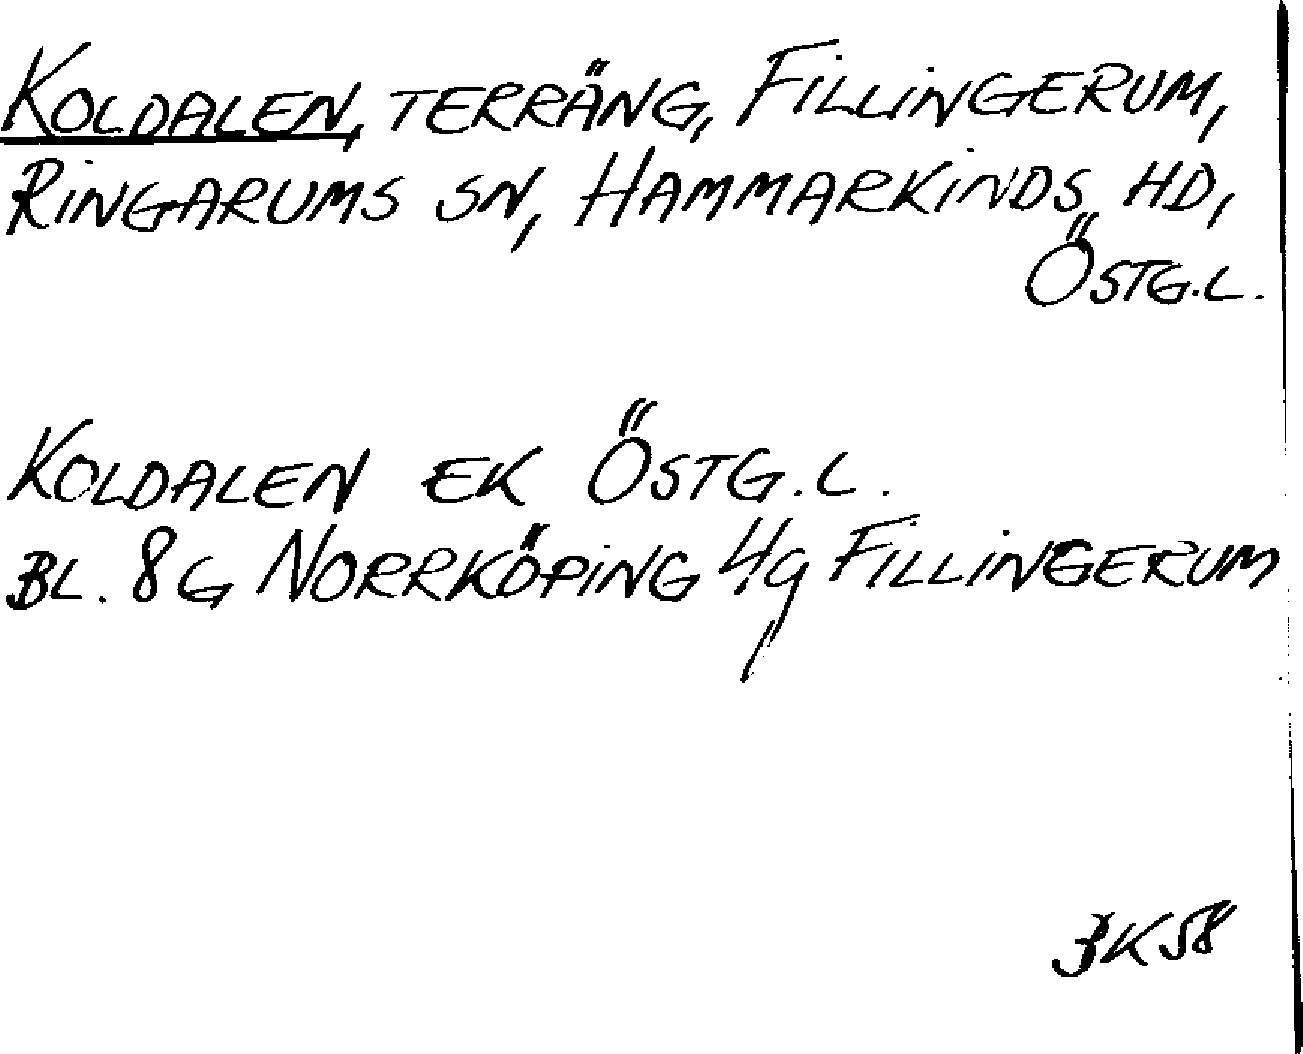 KOLDALEN, TERRÄNG, FILLINGERUM,
RINGARUMS SN, HAMMARKINDS HD,
ÖSTG.L.
KOLDALEN EK ÖSTG.L.
BL. 8G NORRKÖPING 4g FILLINGERUM
BK58